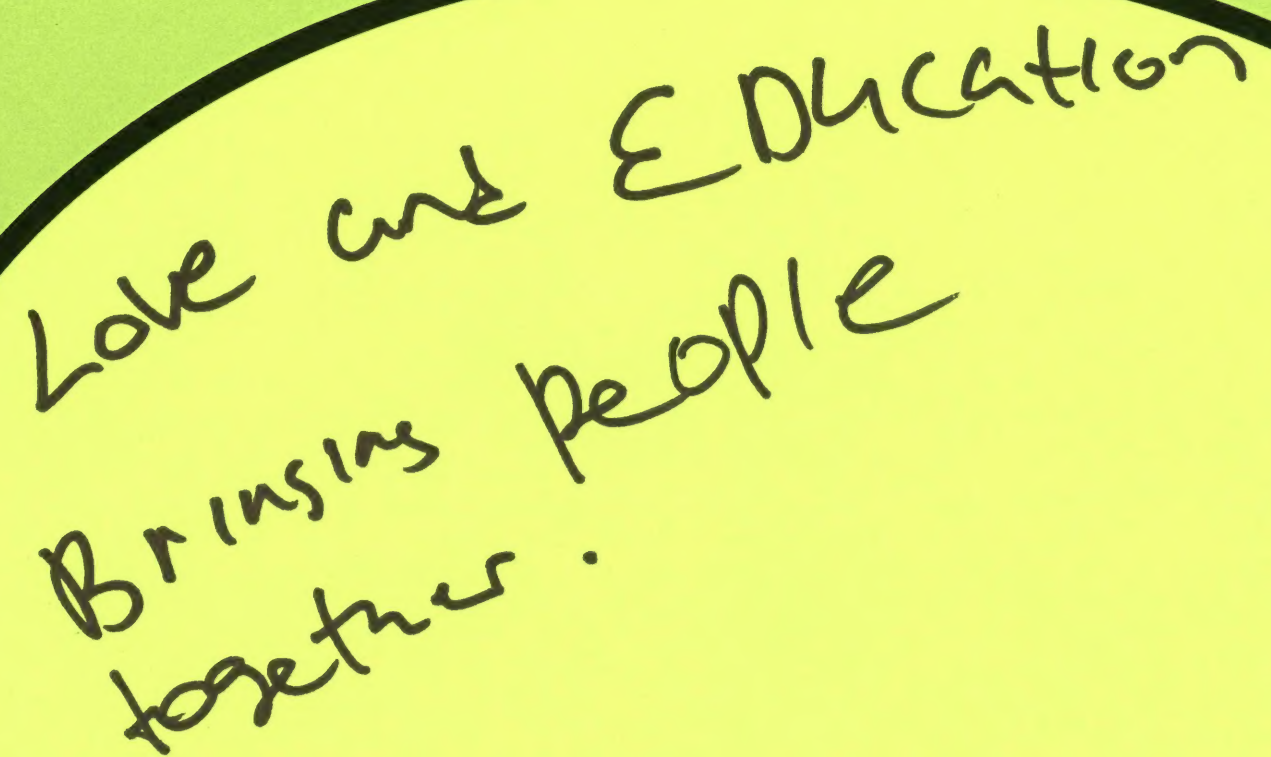 Love and EDucation
Bringing people
together.